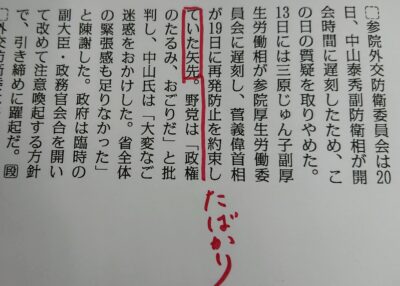 参院外交防衛委員会は20
日、中山泰秀副防衛相が開
会時間に遅刻したため、こ
の日の質疑を取りやめた。
13日には三原じゅん子副厚
生労働相が参院厚生労働委
員会に遅刻し、菅義偉首相
が19日に再発防止を約束し
ていた矢先。野党は「政権
のたるみ、おごりだ」と批
判し、中山氏は「大変なご
迷惑をおかけした。省全体
の緊張感も足りなかった」
と陳謝した。政府は臨時の
副大臣・政務官会合を開い
て改めて注意喚起する方針
で、引き締めに躍起だ。㊞
外交防衛委
たばかり